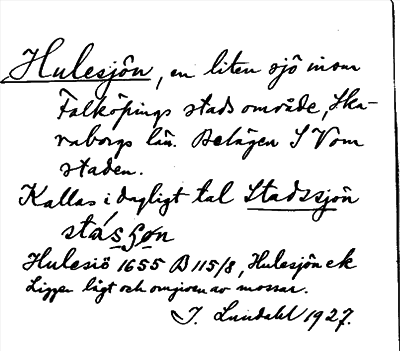 Hulesjön, en liten sjö inom
Falköpings stads område, Ska-
raborgs län. Belägen S V om
staden.
Kallas i dagligt tal Stadssjön
stásʃøn
Hulesiö 1655 B 115/8, Hulesjön ek
Ligger lågt och omgiven av mossar.
J. Lundahl 1927.